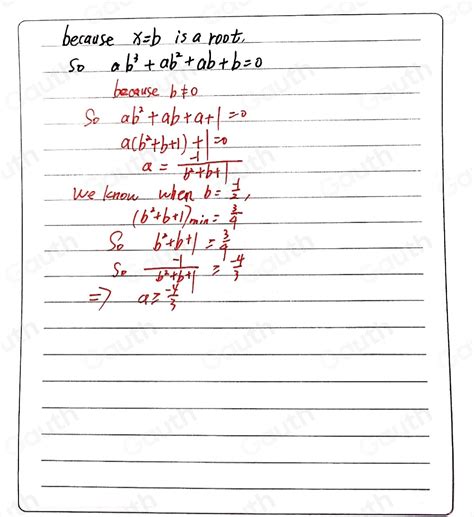 because x=b is a root,
So ab³+ab²+ab+b=0
because b≠0
So ab²+ab+a+1=0
a(b²+b+1)+1=0
a = -1/(b²+b+1)
We know when b=-1/2,
(b²+b+1)min=3/4
So b²+b+1≥3/4
So -1/(b²+b+1) ≥ -4/3
=> a≥-4/3